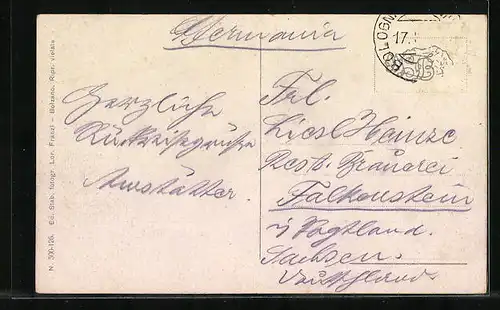 Germania
BOLOGN
17.
Herzliche
Rückreisegrüße
Amstätter.
Frl.
Liesl Heinze
Rest. Brauerei
Falkenstein
i Vogtland.
Sachsen.
Deutschland.
N. 300-126. Ed. Stab. fotogr. Lor. Fränzl - Bolzano. Ripr. vietata